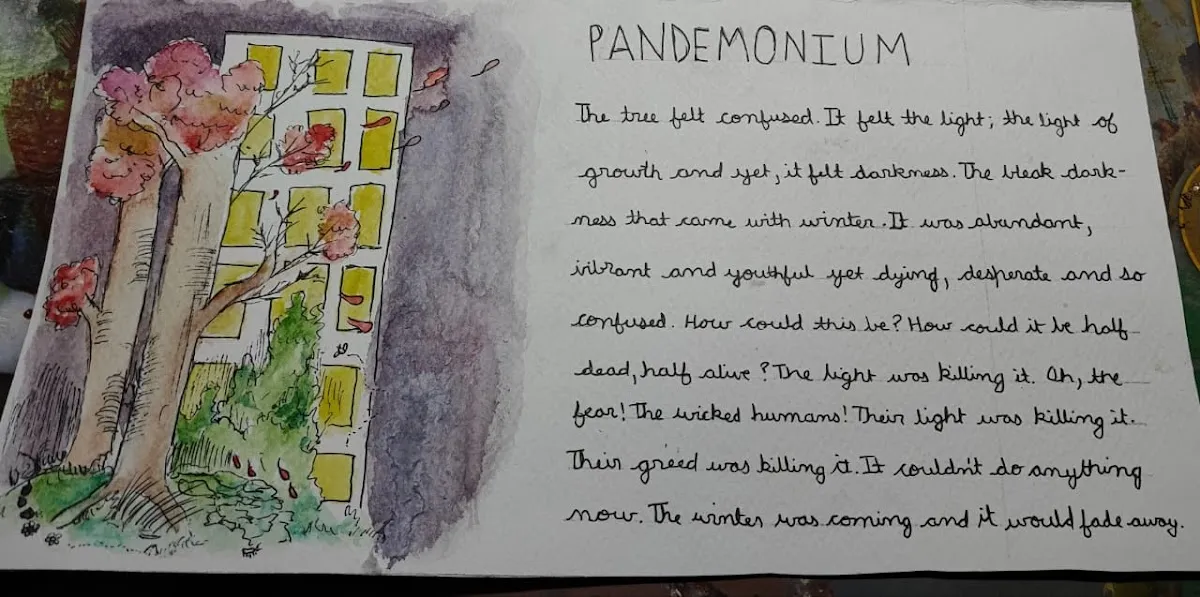 PANDEMONIUM
The tree felt confused. It felt the light; the light of
growth and yet, it felt darkness. The bleak dark-
ness that came with winter. It was abundant,
vibrant and youthful yet dying, desperate and so
confused. How could this be? How could it be half
dead, half alive? The light was killing it. Oh, the
fear! The wicked humans! Their light was killing it.
Their greed was killing it. It couldn't do anything
now. The winter was coming and it would fade away.